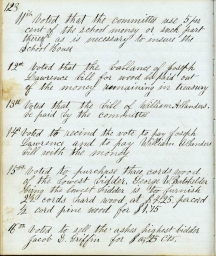 128
11th Voted that the committee use 5 per
cent of the school money or such part
there of as is necessary to insure the
School House
12th Voted that the ballance of Joseph
Lawrence bill for wood be paid out
of the money remaining in treasury
13th Voted that the bill of William A Landers
be paid by the committee
14th Voted to recind the vote to pay Joseph
Lawrence and to pay William A Landers
bill with the money
15th Voted to purchase this cords wood
of the lowest bidder George W
being the lowest bidder is to furnish
2 1/2 cords hard wood at $4.25 per cord
1/2 cord pine wood for $1.75
16th Voted to sell the ashes highest bidder
Jacob S. Griffin for cts.